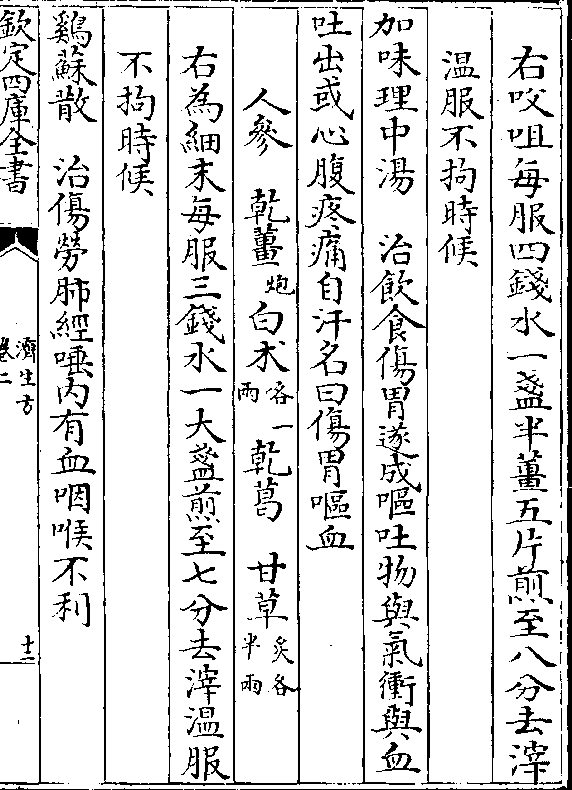 右㕮咀每服四錢水一盞半薑五片煎至八分去滓
温服不拘時候
加味理中湯　治飲食傷胃遂成嘔吐物與氣衝與血
吐出或心腹疼痛自汗名曰傷胃嘔血
人參　乾薑炮　白术各一兩　乾葛　甘草炙各半兩
右為細末每服三錢水一大盞煎至七分去滓温服
不拘時候
鷄蘇散　治傷勞肺經唾内有血咽喉不利
欽定四庫全書　濟生方卷二　十二